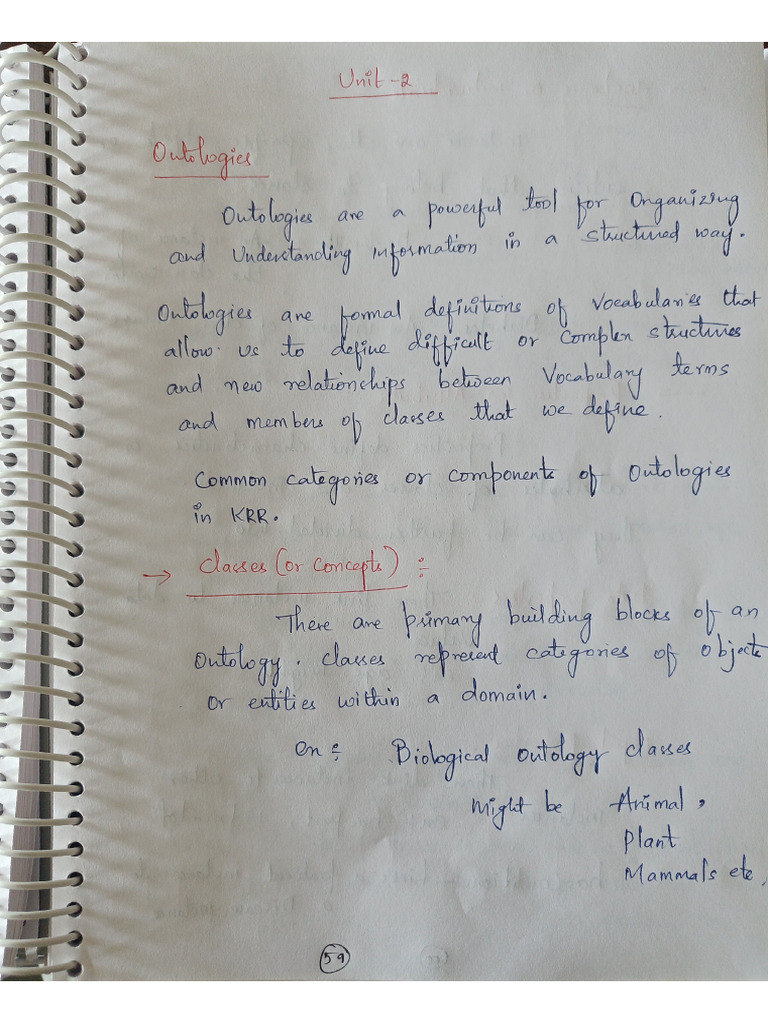 Unit - 2
Ontologies
Ontologies are a powerful tool for Organizing
and Understanding information in a structured way.
Ontologies are formal definitions of Vocabularies that
allow us to define difficult or Complex structures
and new relationships between Vocabulary terms
and members of classes that we define.
Common categories or components of Ontologies
in KRR.
→ Classes (or Concepts) :-
There are primary building blocks of an
Ontology. Classes represent categories of objects
or entities within a domain.
en :- Biological ontology classes
might be Animal,
Plant
Mammals etc,
59